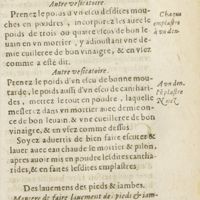 Autre vesicatoire.
Prenez le poids d'vn escu desdites mou-
ches en poudres, incorporez les auec le
poids de trois ou quatre escus de bon le-
uain en vn mortier, y adioustant vne de-
mie cuilleree de bon vinaigre, & en vsez
comme a esté dit.
Chacun
emplastre
à vn den.
Autre vesicatoire.
Prenez le poids d'vn escu de bonne mou-
tarde, le poids aussi d'vn escu de cantha-
rides, mettez le tout en poudre, laquelle
meslerez dans vn mortier auec vne once
de bon leuain, & vne cuilleree de bon
vinaigre, & en vsez comme dessus.
A vn den.
l'éplastre
Soyez aduertis de bien faire escurer &
lauer auec eau chaude le mortier & pilon,
apres auoir mis en poudre lesdites canthari-
des, & en faites lesdites emplastres.
Des lauemens des pieds & iambes.
Maniere de faire lauement de pieds & iam-